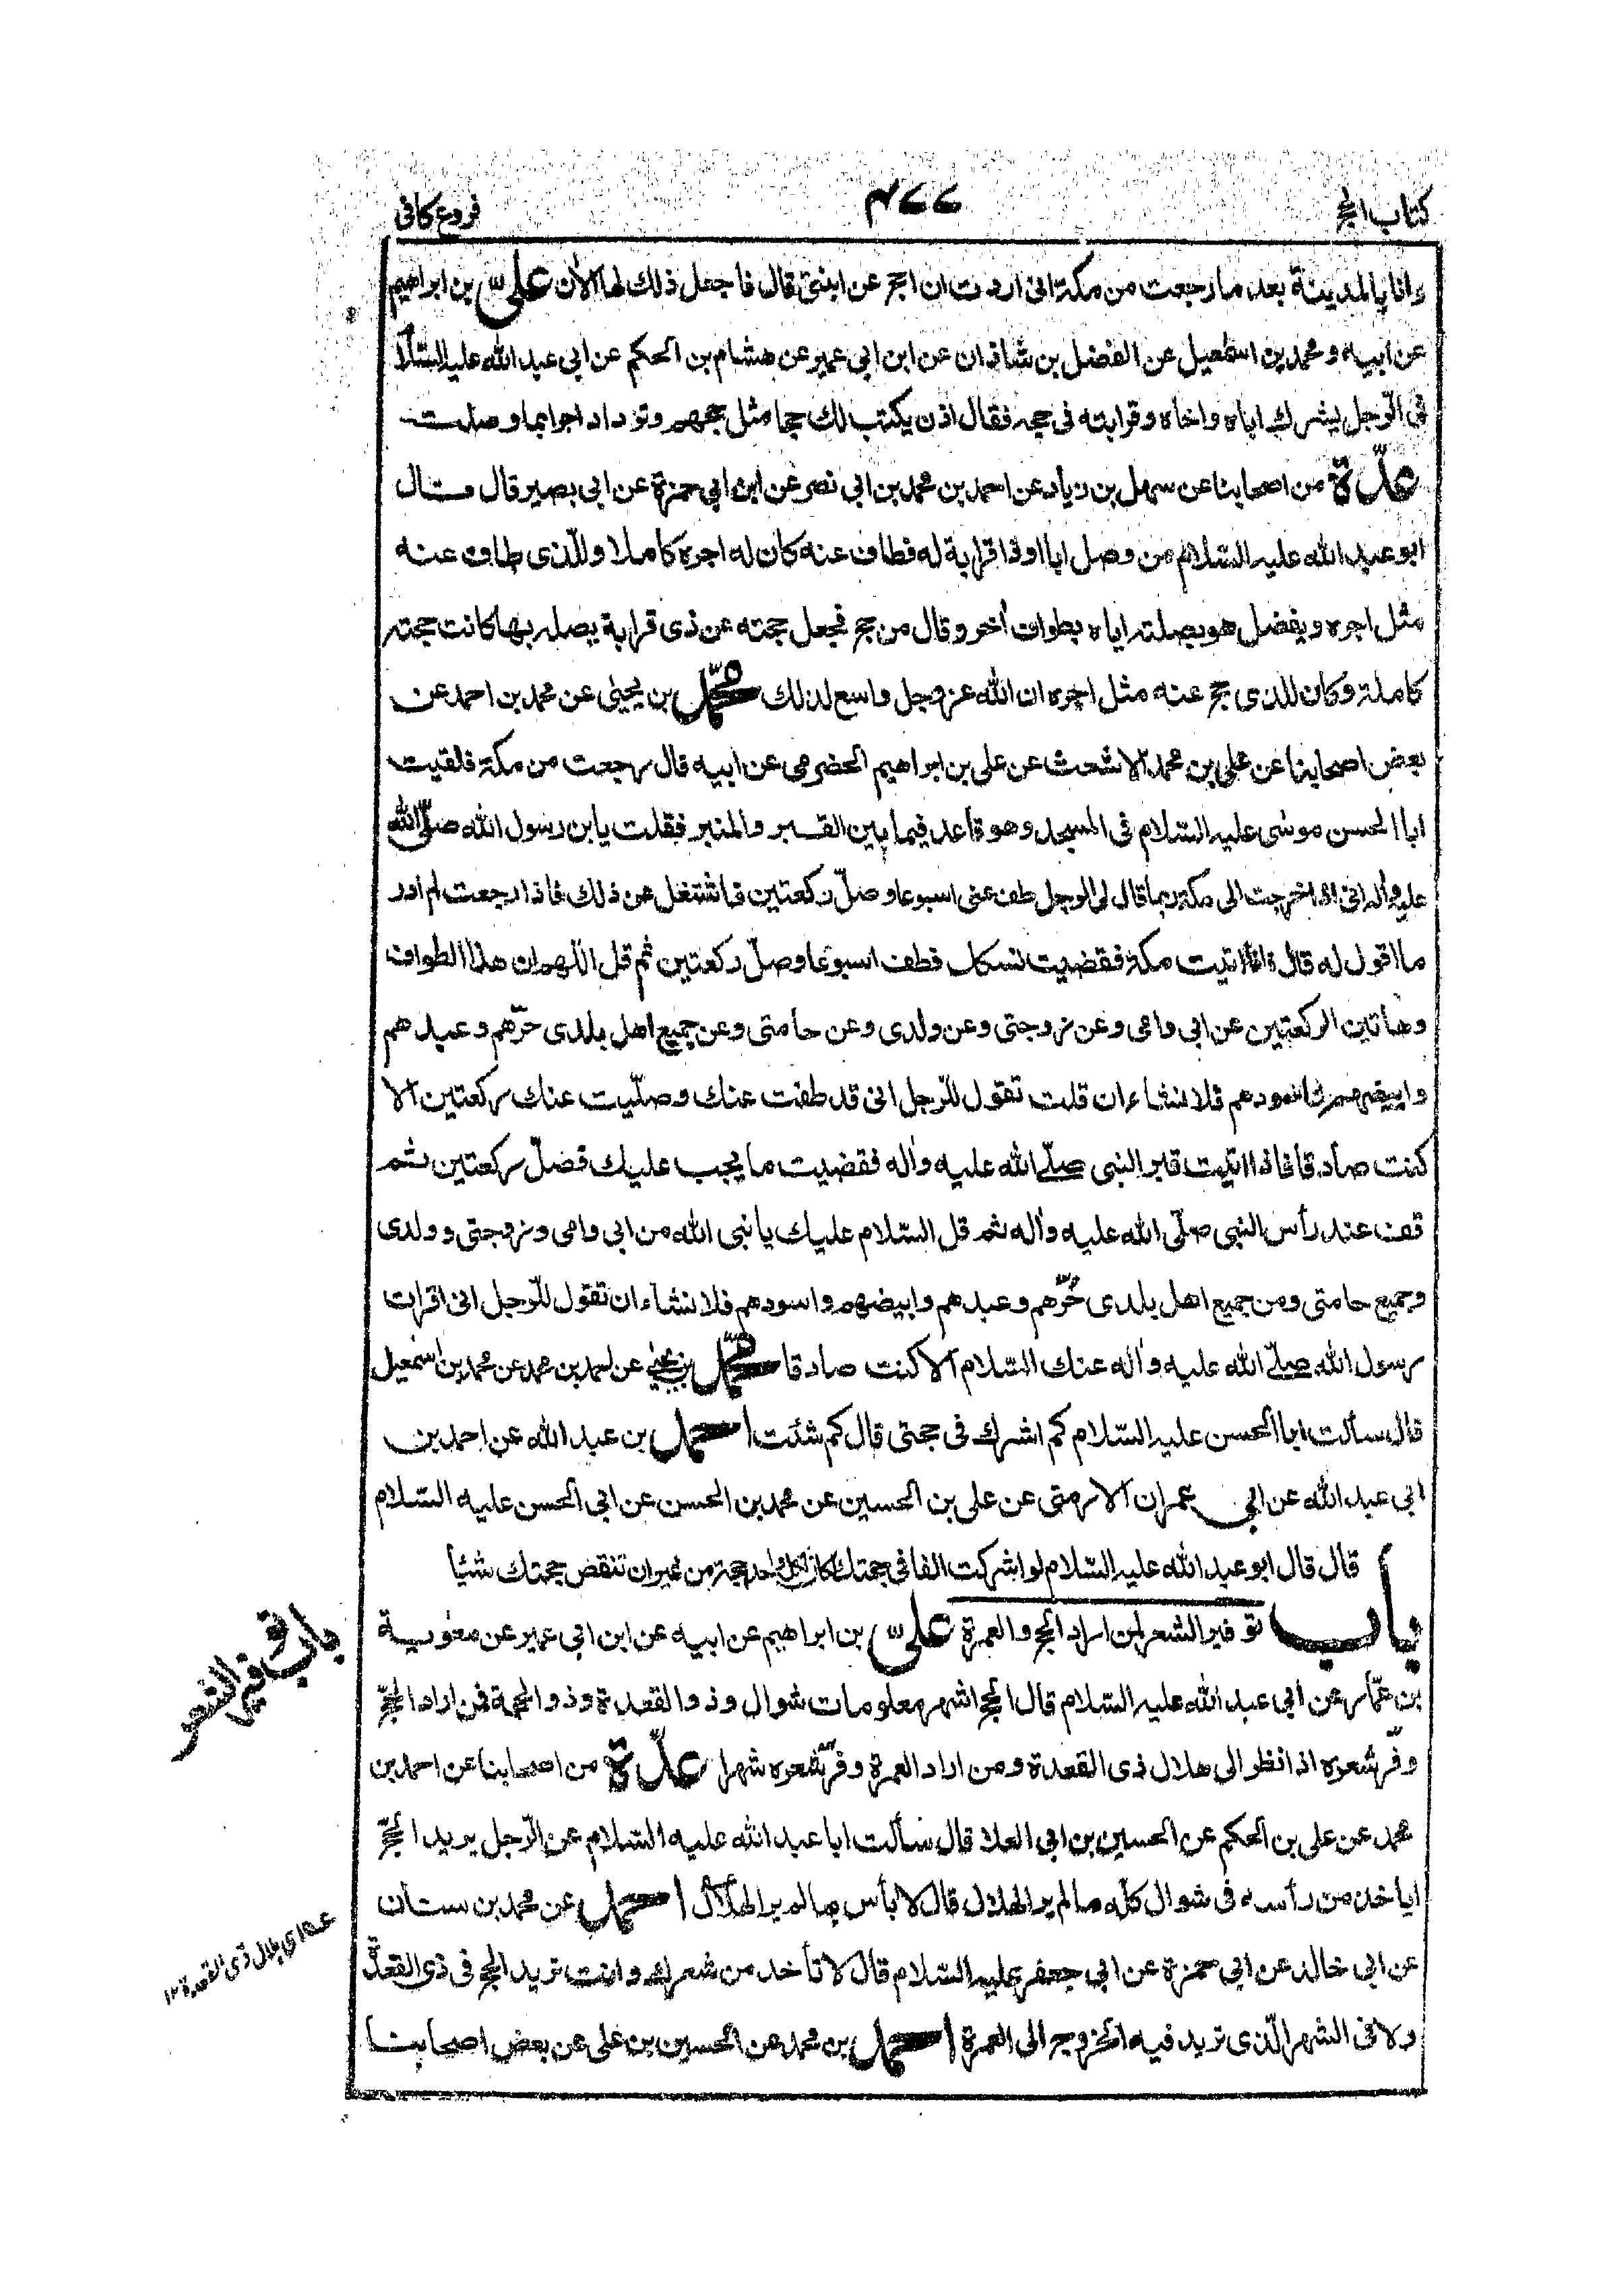 كتاب الحج
٤٧٧
فروع كافى
وانا بالمدينة بعد ما رجعت من مكة انى اردت ان احج عن ابنتى قال فاجعل ذلك لها الآن علىّ بن ابراهيم
عن ابيه و محمد بن اسمعيل عن الفضل بن شاذان عن ابن ابى عمير عن هشام بن الحكم عن ابى عبد الله عليه السّلام
فى الرّجل يشرك اباه واخاه وقرابته فى حجه فقال اذن يكتب لك حجا مثل حجهم وتزداد اجرا بما وصلت
عدّة من اصحابنا عن سهل بن زياد عن احمد بن محمد بن ابى نصر عن ابن ابى حمزة عن ابى بصير قال قال
ابو عبد الله عليه السّلام من وصل ابا او ذا قرابة له فطاف عنه كان له اجره كاملا وللّذى طاف عنه
مثل اجره ويفضل هو بصلته اياه بطواف اٰخر وقال من حج فجعل حجته عن ذى قرابة يصله بها كانت حجته
كاملة وكان للذى حج عنه مثل اجره ان الله عز وجل واسع لذلك محمّد بن يحيىٰ عن محمد بن احمد عن
بعض اصحابنا عن على بن محمد الاشعث عن على بن ابراهيم الحضرمى عن ابيه قال رجعت من مكة فلقيت
ابا الحسن موسى عليه السّلام فى المسجد وهو قاعد فيما بين القبر والمنبر فقلت يا بن رسول الله صلّى الله
عليه واٰله انى اذا خرجت الى مكة ربما قال لى الرجل طف عنى اسبوعا وصلّ ركعتين فاشتغل عن ذلك فاذا رجعت لم ادر
ما اقول له قال اذا اتيت مكة فقضيت نسكك فطف اسبوعا وصلّ ركعتين ثم قل اللّهم ان هذا الطواف
وهاتين الركعتين عن ابى وامى وعن زوجتى وعن ولدى وعن حامتى وعن جميع اهل بلدى حرّهم وعبدهم
وابيضهم واسودهم فلا نشاء ان قلت تقول للّرجل انى قد طفت عنك وصلّيت عنك ركعتين الا
كنت صادقا فاذا اتيت قبر النبى صلّى الله عليه واٰله فقضيت ما يجب عليك فصلّ ركعتين ثم
قف عند رأس النبى صلّى الله عليه واٰله ثم قل السّلام عليك يا نبى الله من ابى وامى وزوجتى وولدى
وجميع حامتى ومن جميع اهل بلدى حُرّهم وعبدهم وابيضهم واسودهم فلا نشاء ان تقول للّرجل انى اقرات
رسول الله صلّى الله عليه واٰله عنك السّلام الا كنت صادقا محمّد بن يحيى عن احمد بن محمد عن محمد بن اسمٰعيل
قال سألت ابا الحسن عليه السّلام كم اشرك فى حجتى قال كم شئت احمد بن عبد الله عن احمد بن
ابى عبد الله عن ابى عمران الارمنى عن على بن الحسين عن محمد بن الحسن عن ابى الحسن عليه السّلام
قال قال ابو عبد الله عليه السّلام لو اشركت الفا فى حجتك لكان لكل واحد حجة من غير ان تنقص حجتك شيئا
باب توفير الشعر لمن اراد الحج والعمرة علىّ بن ابراهيم عن ابيه عن ابن ابى عمير عن معٰوية
بن عمّار عن ابى عبد الله عليه السّلام قال الحج اشهر معلومات شوال وذو القعدة وذو الحجة فمن اراد الحجّ
وفّر شعره اذا نظر الى هلال ذى القعدة ومن اراد العمرة وفّر شعره شهرا عدّة من اصحابنا عن احمد بن
محمد عن على بن الحكم عن الحسين بن ابى العلا قال سألت ابا عبد الله عليه السّلام عن الّرجل يريد الحجّ
اياخذ من رأسه فى شوال كلّه ما لم ير الهلال قال لا بأس ما لم ير الهلال احمد عن محمد بن سنان
عن ابى خالد عن ابى حمزة عن ابى جعفر عليه السّلام قال لا تأخذ من شعرك وانت تريد الحج فى ذى القعدة
ولا فى الشهر الّذى تريد فيه الخروج الى العمرة احمد بن محمد عن الحسين بن على عن بعض اصحابنا
باب توفير الشعر
اى هلال ذى القعدة ١٢